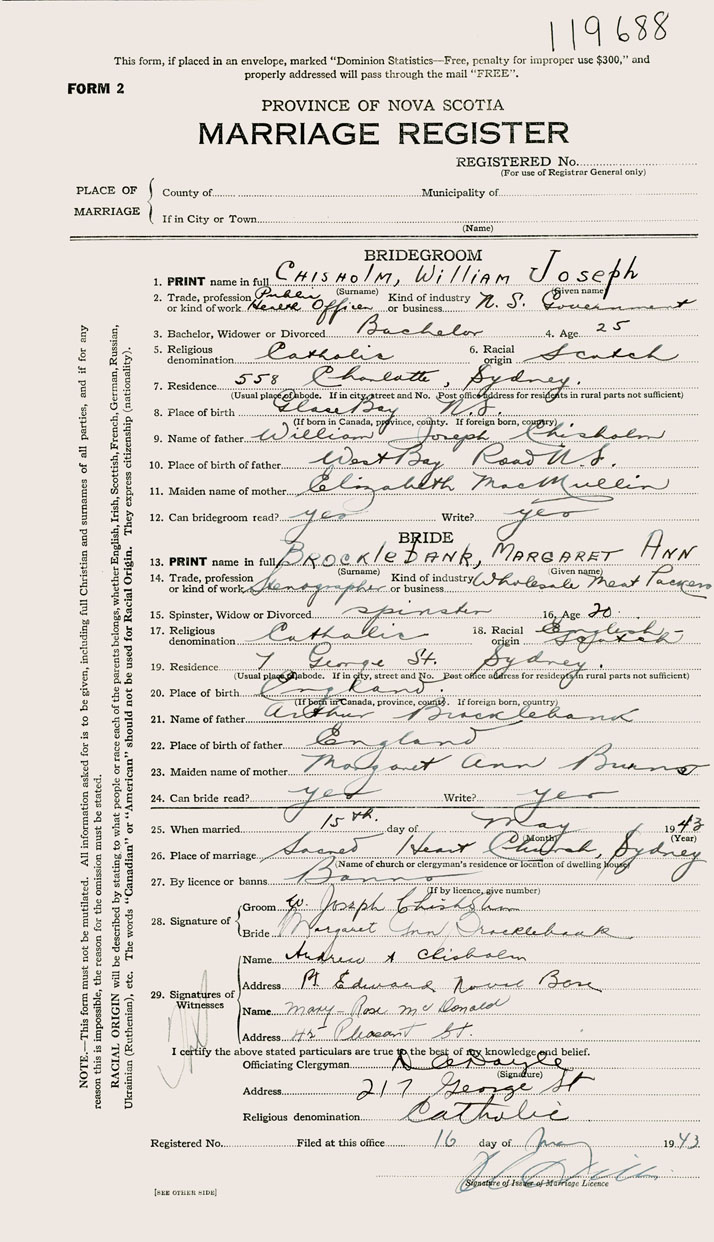 119688
This form, if placed in an envelope, marked "Dominion Statistics—Free, penalty for improper use $300," and
properly addressed will pass through the mail "FREE".
FORM 2
PROVINCE OF NOVA SCOTIA
MARRIAGE REGISTER
REGISTERED No.
(For use of Registrar General only)
PLACE OF MARRIAGE
County of Municipality of
If in City or Town
(Name)
BRIDEGROOM
1. PRINT name in full CHISHOLM, WILLIAM JOSEPH
(Surname) (Given name)
2. Trade, profession or kind of work Public Health Officer Kind of industry or business N. S. Government
3. Bachelor, Widower or Divorced Bachelor 4. Age 25
5. Religious denomination Catholic 6. Racial origin Scotch
7. Residence 558 Charlotte, Sydney.
(Usual place of abode. If in city, street and No. Post office address for residents in rural parts not sufficient)
8. Place of birth Glace Bay N.S.
(If born in Canada, province, county. If foreign born, country)
9. Name of father William Joseph Chisholm
10. Place of birth of father West Bay Road N.S.
11. Maiden name of mother Elizabeth MacMullin
12. Can bridegroom read? yes Write? yes
BRIDE
13. PRINT name in full BROCKLEBANK, MARGARET ANN
(Surname) Given name
14. Trade, profession or kind of work Stenographer Kind of industry or business Wholesale Meat Packers
15. Spinster, Widow or Divorced spinster 16. Age 20
17. Religious denomination Catholic 18. Racial origin English Scotch
19. Residence 7 George St. Sydney.
(Usual place of abode. If in city, street and No. Post office address for residents in rural parts not sufficient)
20. Place of birth England.
(If born in Canada, province, county. If foreign born, country)
21. Name of father Arthur Brocklebank
22. Place of birth of father England
23. Maiden name of mother Margaret Ann Burns
24. Can bride read? yes Write? yes
25. When married 15th. day of May 1943
(Month) (Year)
26. Place of marriage Sacred Heart Church, Sydney
(Name of church or clergyman's residence or location of dwelling house)
27. By licence or banns Banns
(If by licence, give number)
28. Signature of
Groom W. Joseph Chisholm
Bride Margaret Ann Brocklebank
29. Signatures of Witnesses
Name Andrew A Chisholm
Address Pt Edward Naval Base
Name Mary-Rose McDonald
Address 45 Pleasant St.
I certify the above stated particulars are true to the best of my knowledge and belief.
Officiating Clergyman Doyle
(Signature)
Address 217 George St
Religious denomination Catholic
Registered No. Filed at this office 16 day of May 1943
Signature of Issuer of Marriage Licence
[SEE OTHER SIDE]
NOTE.—This form must not be mutilated. All information asked for is to be given, including full Christian and surnames of all parties, and if for any
reason this is impossible, the reason for the omission must be stated.
RACIAL ORIGIN will be described by stating to what people or race each of the parents belongs, whether English, Irish, Scottish, French, German, Russian,
Ukrainian (Ruthenian), etc. The words "Canadian" or "American" should not be used for Racial Origin. They express citizenship (nationality).